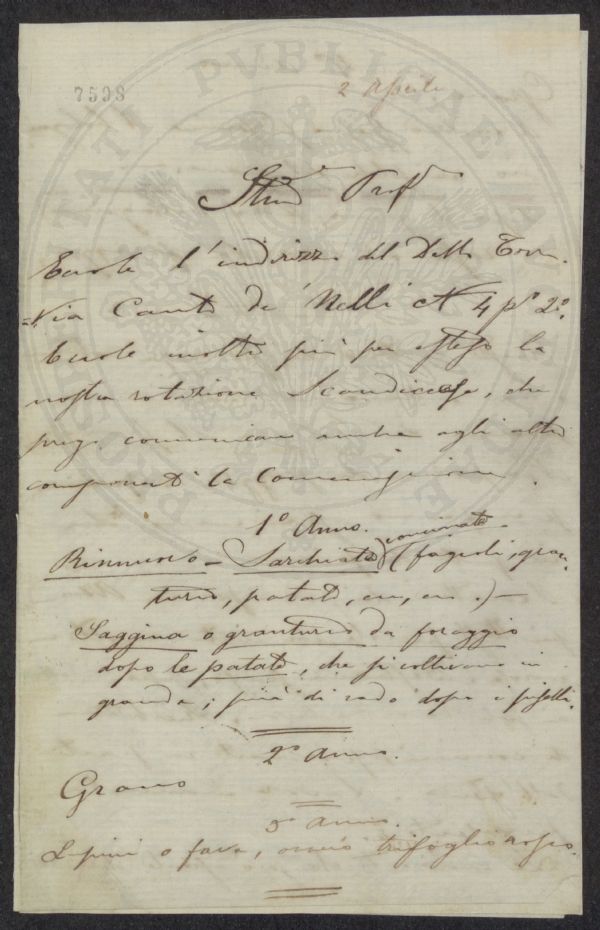 7598
2 Aprile
Stimº Profº
Eccole l'indirizzo del Dello Torre.
Via Canto de' Nelli Nº 4 pº 2º.
Eccole inoltre più per esteso la
nostra rotazione Scandiccese, che
prego comunicare anche agli altri
componenti la Commissione.
1º Anno.
concimate
Rinnuovo – Sarchiate (fagioli, gran-
turco, patate, ecc, ecc.) –
Saggina o granturco da foraggio
dopo le patate, che si coltivano in
grande; più di rado dopo i piselli.
2º Anno.
Grano
3º Anno.
Lupini o fava, ovvero trifoglio rosso.